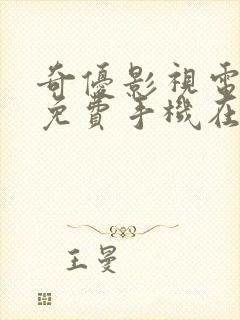 奇優影視電
免費手機在
王曼